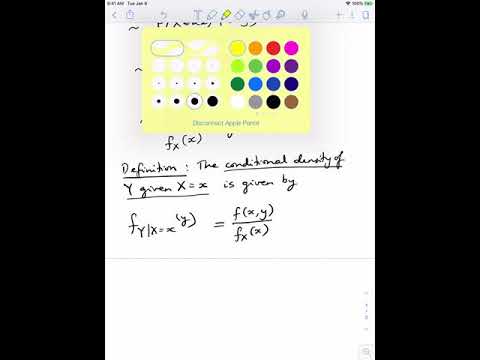 9:41 AM Tue Jan 6
100%
Disconnect Apple Pencil
f_X(x)
Definition : The conditional density of
Y given X = x is given by
f_{Y|X=x}(y) = f(x,y) / f_X(x)